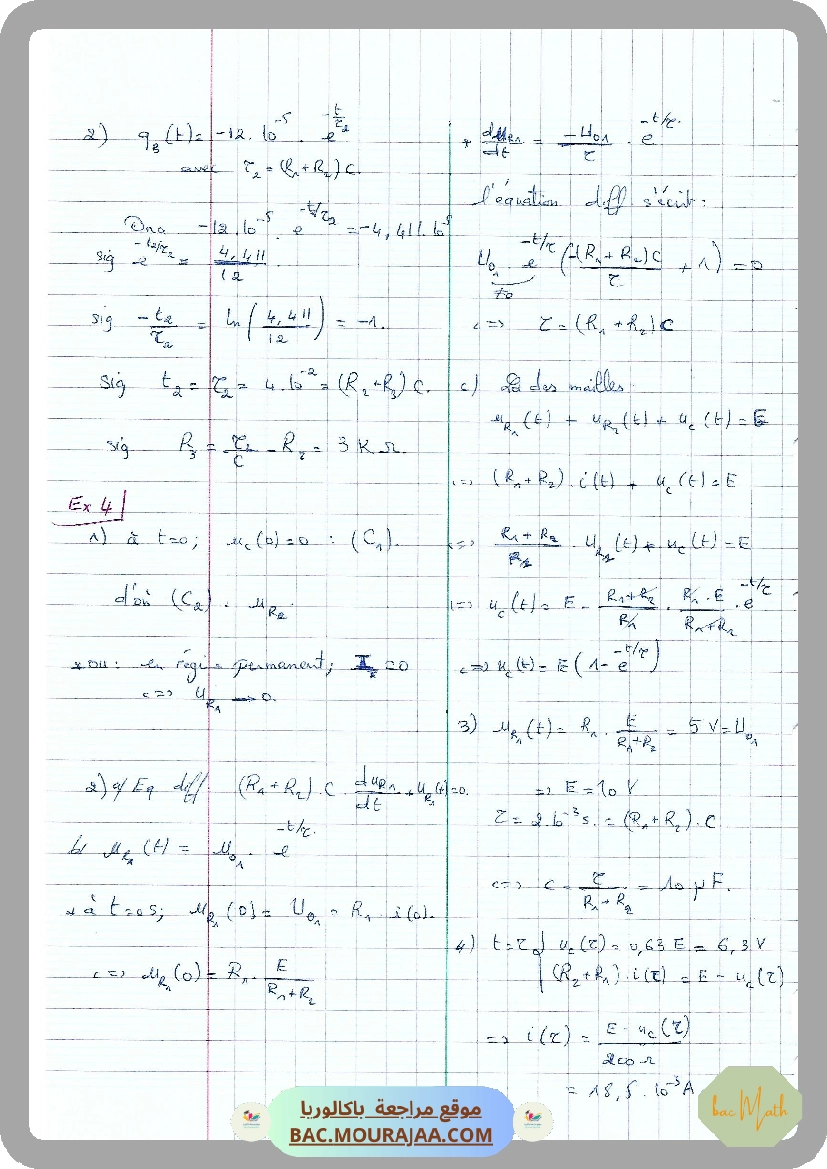 2) q₃(t) = -12. 10⁻⁵ . e^(-t/τ₂)
avec τ₂ = (R₁+R₂)C.
Ona -12.10⁻⁵ . e^(-t/τ₂) = -4,411.10⁻⁵
sig e^(-t₂/τ₂) = 4,411/12.
sig -t₂/τ₂ = ln(4,411/12) = -1.
sig t₂ = τ₂ = 4.10⁻² = (R₂+R₃)C.
sig R₃ = τ₂/C - R₂ = 3 KΩ.
Ex 4
1) à t=0; u_c(0)=0 : (C₁).
d'où (C₂) : u_R₂
* ou : en régime permanent, I =0
<=> U_R₁ → 0.
2) a/ Eq diff (R₁+R₂).C du_R₁/dt + u_R₁(t)=0.
b/ u_R₁(t) = U₀₁ . e^(-t/τ).
* à t=0s; u_R₁(0) = U₀₁ = R₁ . i(0).
<=> u_R₁(0) = R₁ . E/(R₁+R₂)
* du_R₁/dt = -U₀₁/τ . e^(-t/τ).
l'équation diff s'écrit :
U₀₁ . e^(-t/τ) (-(R₁+R₂)C/τ + 1) = 0
≠0
<=> τ = (R₁+R₂)C
c) des mailles
u_R₁(t) + u_R₂(t) + u_c(t) = E
<=> (R₁+R₂).i(t) + u_c(t) = E
<=> (R₁+R₂)/R₁ . u_R₁(t) + u_c(t) = E
<=> u_c(t) = E - (R₁+R₂)/R₁ . R₁.E/(R₁+R₂) . e^(-t/τ)
<=> u_c(t) = E(1 - e^(-t/τ))
3) u_R₁(t) = R₁ . E/(R₁+R₂) = 5 V = U₀₁
=> E = 10 V
τ = 2.10⁻³ s. = (R₁+R₂).C
<=> C = τ/(R₁+R₂) = 10 μF.
4) t=τ u_c(τ) = 0,63 E = 6,3 V
(R₂+R₁).i(τ) = E - u_c(τ)
=> i(τ) = (E - u_c(τ))/200 Ω
= 18,5 . 10⁻³ A
موقع مراجعة باكالوريا
BAC.MOURAJAA.COM
bac Math